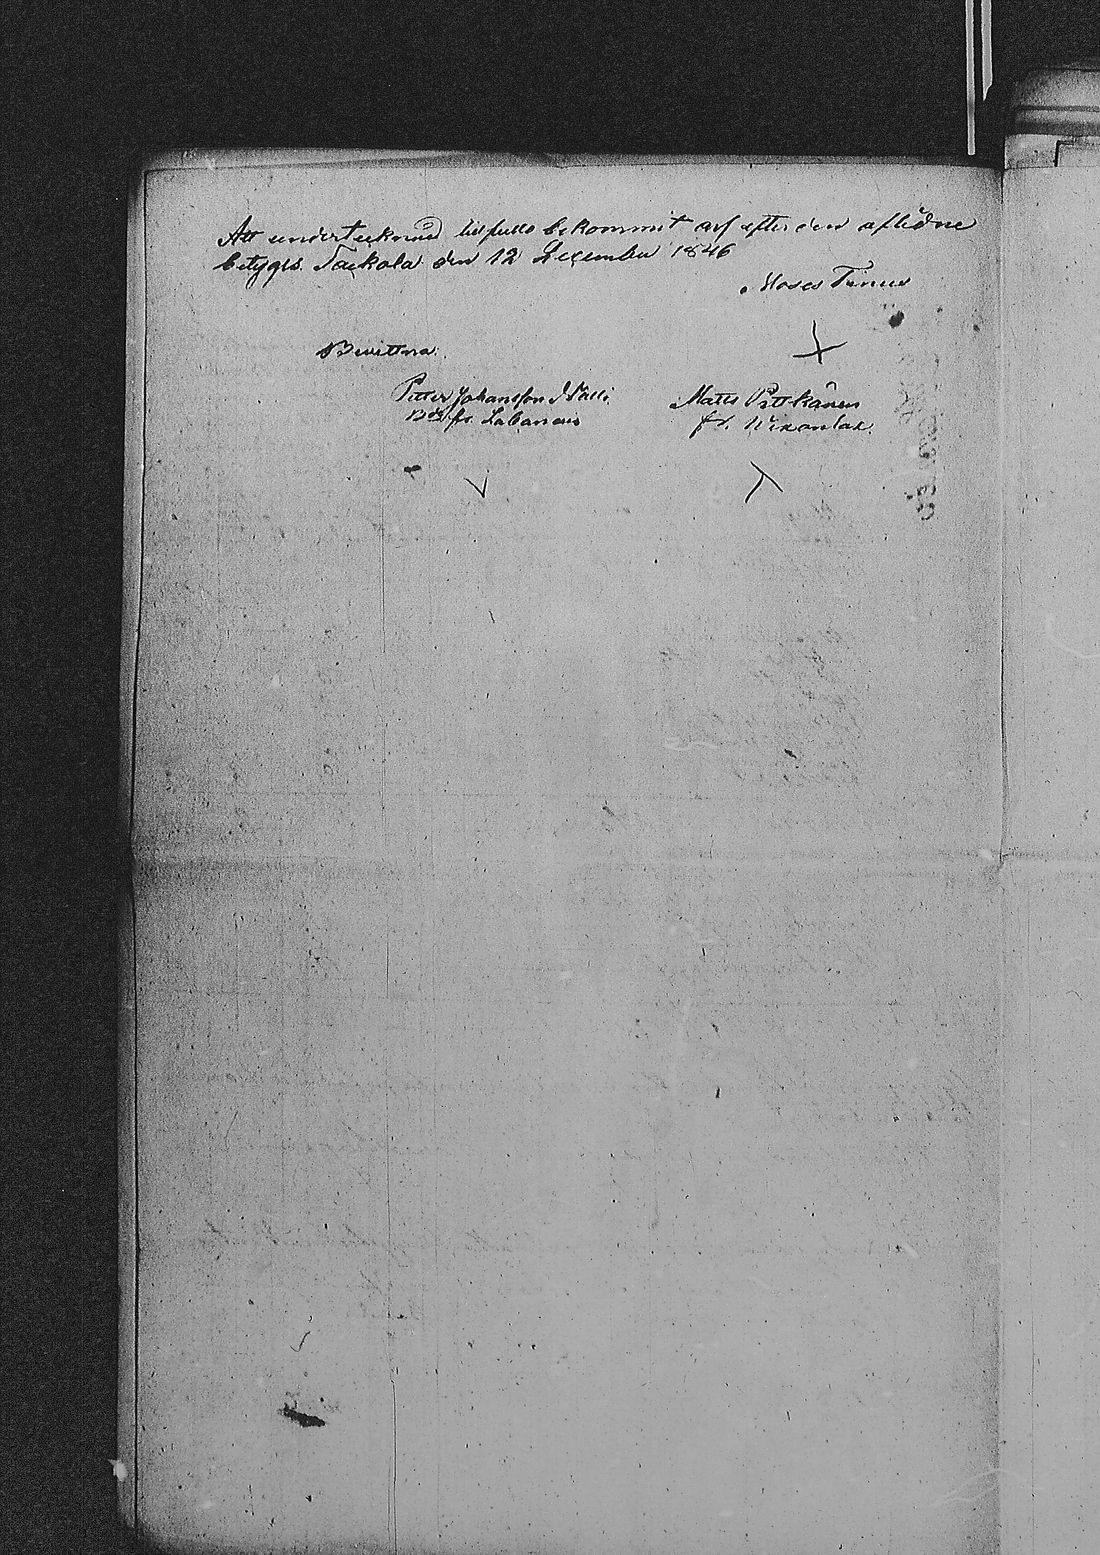 Att undertecknad till fullo bekommit arf efter den aflidne
betygas. Taskola den 12 December 1846
Moses Tenus
Bevittna.
Petter Johansson
fr. Labanais
Matts Pitkänen
fr.